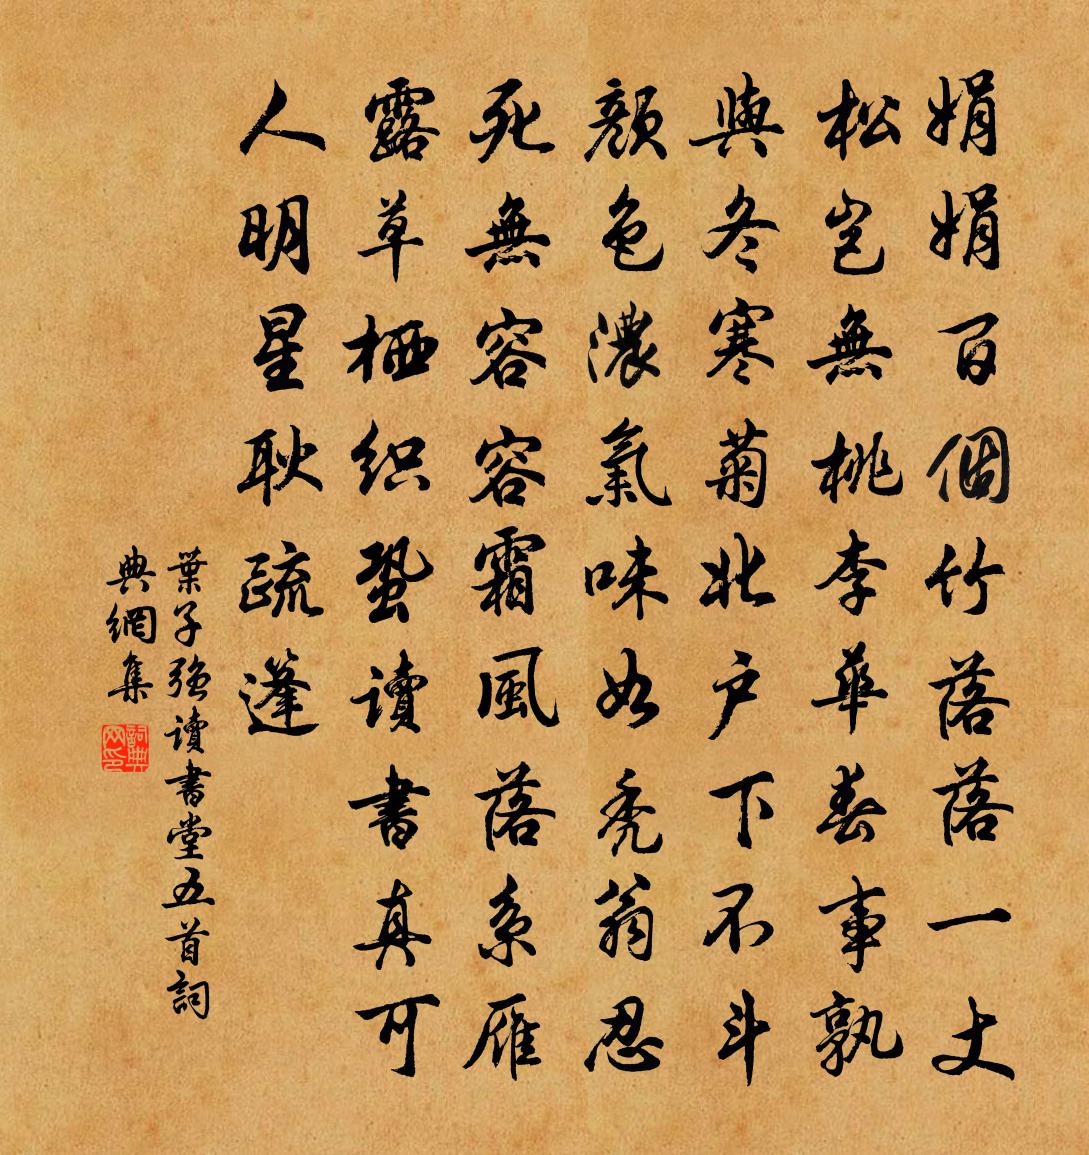 娟娟百個竹落落一丈
松豈無桃李華春事孰
與冬寒菊北户下不斗
顏色濃氣味如禿翁忍
死無容容霜風落系雁
露草栖织蛩讀書真可
人明星耿疏蓬
葉子强讀書堂五首詞
典網集
詞典網印